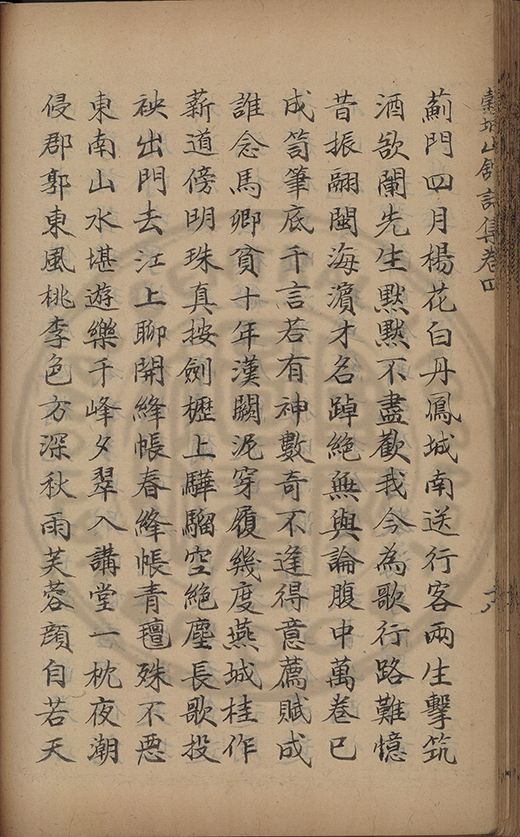 穀城山館詩集卷四
薊門四月楊花白丹鳳城南送行客兩生擊筑
酒欲闌先生默默不盡歡我今為歌行路難憶
昔振翮閩海濵才名踔絕無與論腹中萬卷已
成笥筆底千言若有神數奇不逢得意薦賦成
誰念馬卿貧十年漢闕泥穿履幾度燕城桂作
薪道傍明珠真按劍櫪上驊騮空絕塵長歌投
袂出門去江上聊開絳帳春絳帳青氊殊不惡
東南山水堪遊樂千峰夕翠入講堂一枕夜潮
侵郡郭東風桃李色方深秋雨芙蓉顔自若天